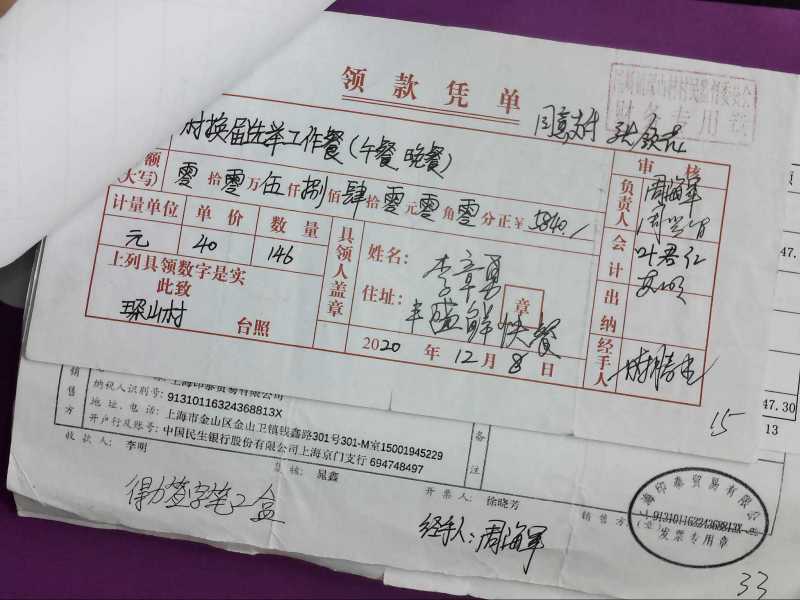 领款凭单
财务专用章
同意支付
村换届选举工作餐(午餐 晚餐)
额
(大写) 零拾零万伍仟捌佰肆拾零元零角零分正¥ 5840/
计量单位 单价 数量
元 40 146
上列具领数字是实
此致
琛山村
台照
具领人盖章
姓名: 李章勇
住址: 丰盛鲜快餐
章
2020 年 12 月 8 日
审核
负责人 周海军
会计 叶君仁
出纳
经手人
15
47.
47.30
13
销售方
上海印泰贸易有限公司
纳税人识别号: 91310116324368813X
地址、电话: 上海市金山区金山卫镇钱鑫路301号301-M室15001945229
开户行及账号: 中国民生银行股份有限公司上海京门支行 694748497
备注
收款人: 李明
复核: 晁鑫
开票人: 徐晓芳
销售方:(章)
上海印泰贸易有限公司
91310116324368813X
发票专用章
得力签字笔2盒
经手人:周海军
33